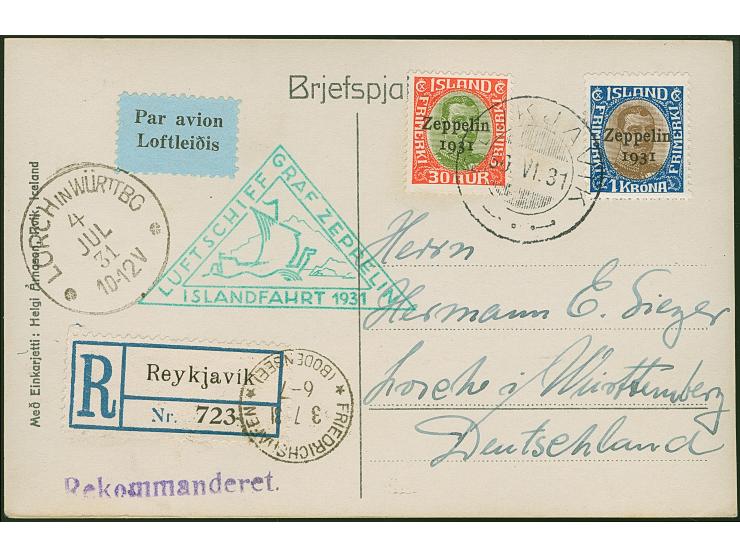 Brjefspja
Par avion
Loftleiðis
ISLAND
FRIMERKI FRIMERKI
Zeppelin
1931
30 AUR
ISLAND
FRIMERKI FRIMERKI
Zeppelin
1931
1 KRÓNA
VI. 31
LORCH IN WÜRTTBG
4
JUL
31
10-12V
LUFTSCHIFF GRAF ZEPPELIN
ISLANDFAHRT 1931
Herrn
Hermann E. Sieger
Lorch i/Württemberg
Deutschland
R
Reykjavik
Nr. 723
(BODENSEE)
6-7
3.7.31
FRIEDRICHSHAFEN
Rekommanderet.
Með Einkarjetti: Helgi Árnason, Rvík, Iceland